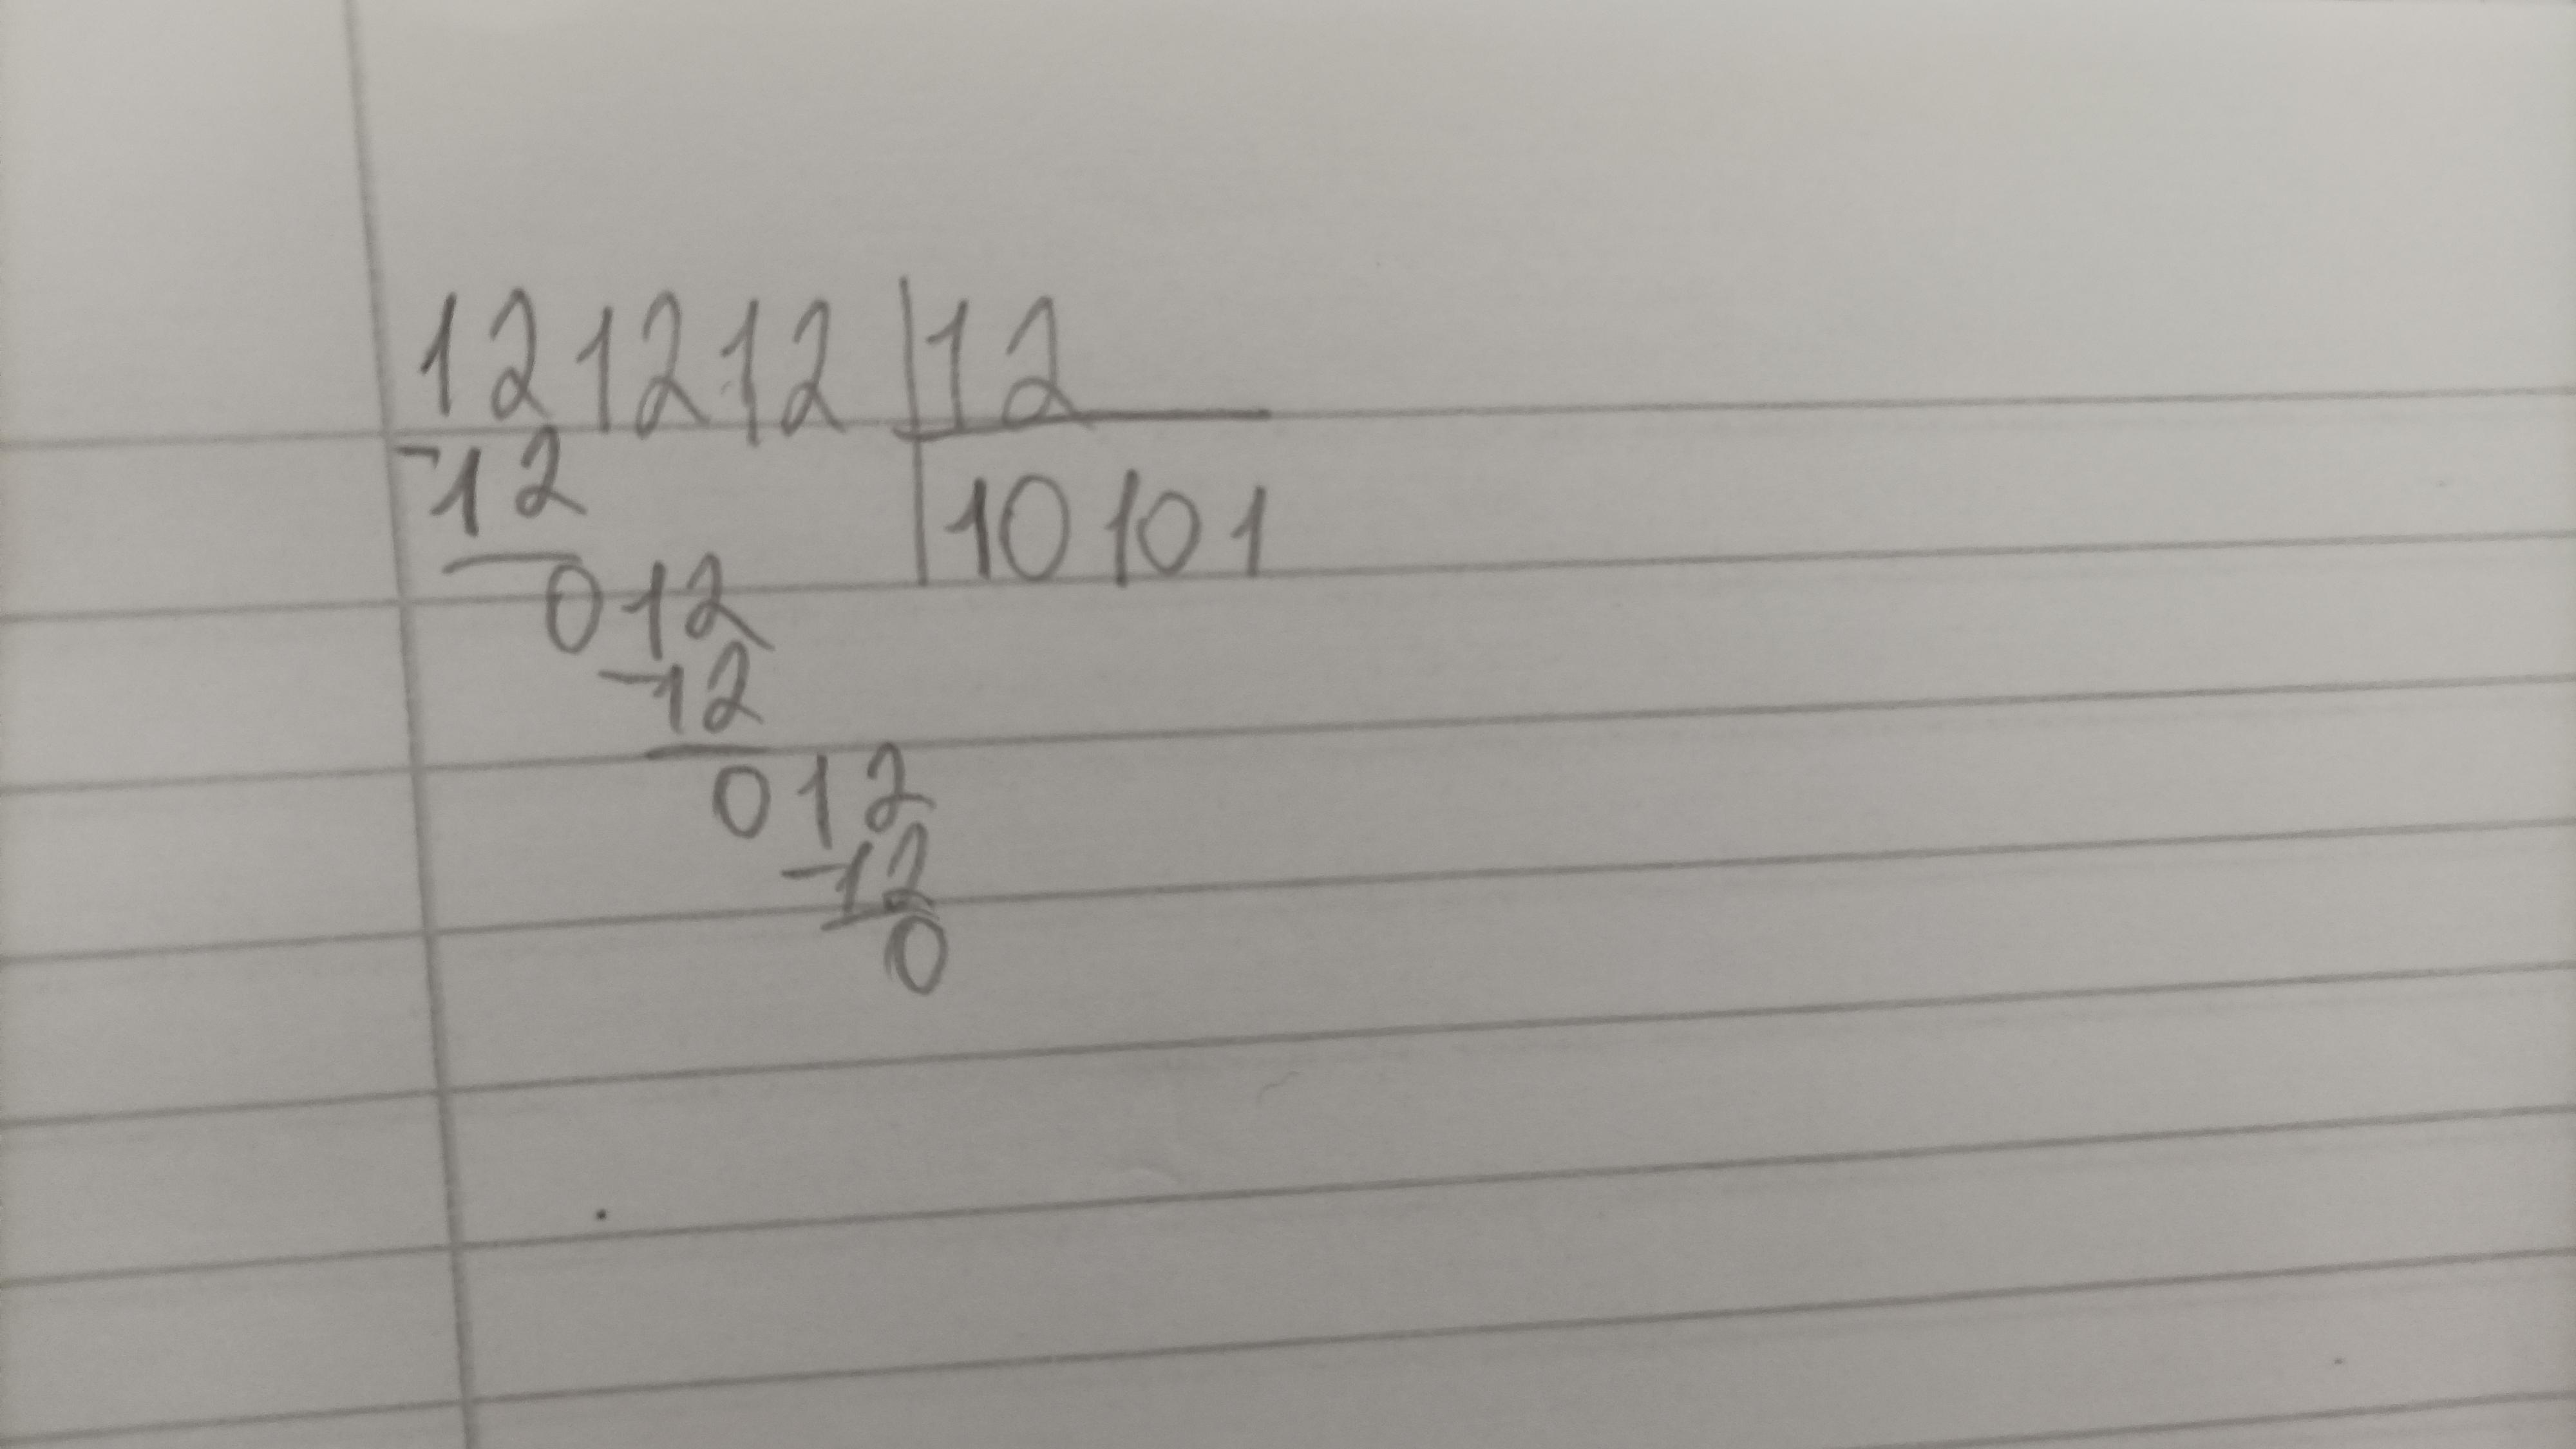 121212 |12
-12 |10101
012
-12
012
-12
0